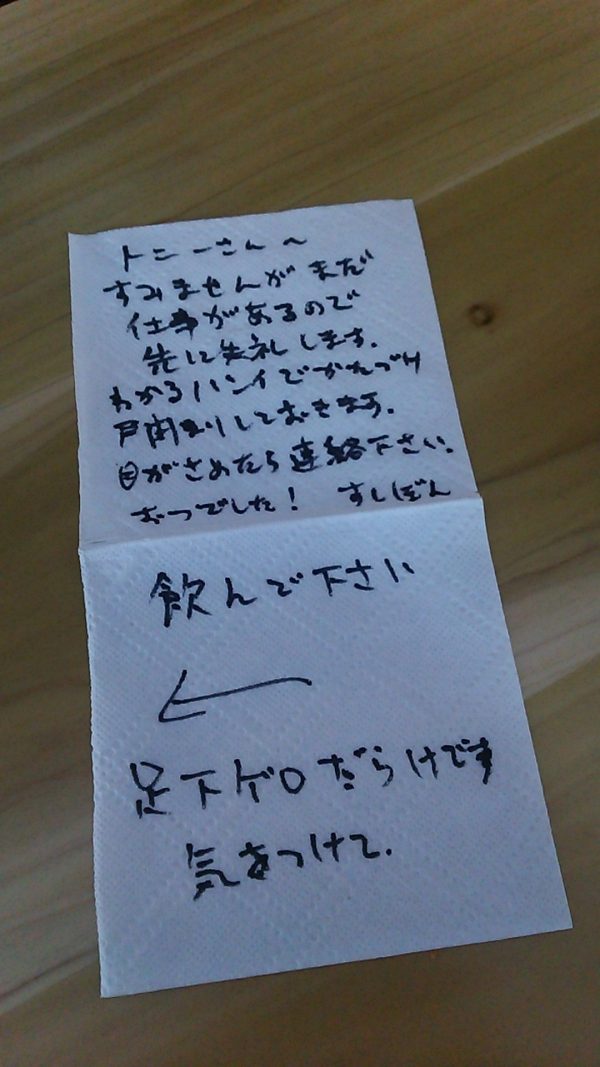 トニーさんへ
すみませんが まだ
仕事があるので
先に失礼します.
わかるハンイでかたづけ
戸閉まりしておきます.
目がさめたら連絡下さい.
おつでした! すしぼん
飲んで下さい
←
足下ゲロだらけです
気をつけて.